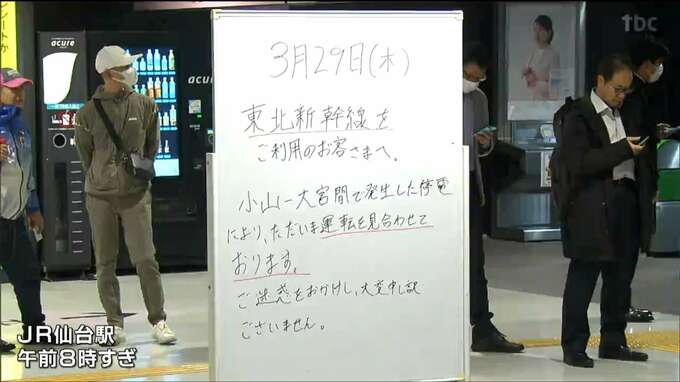 シートか
acure
acure
tbc
3月29日(木)
東北新幹線を
ご利用のお客さまへ。
小山ー大宮間で発生した停電
により、ただいま運転を見合わせて
おります。
ご迷惑をおかけし、大変申し訳
ございません。
JR仙台駅
午前8時すぎ